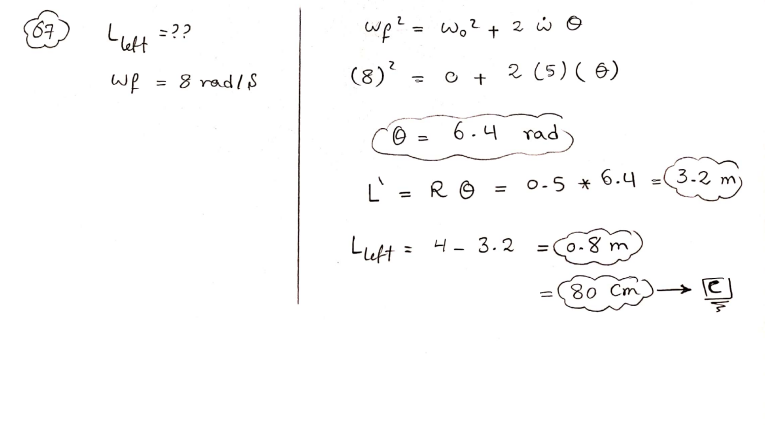 67
L left = ??
ωf = 8 rad/s
ωf² = ω₀² + 2 ω̇ θ
(8)² = 0 + 2 (5) ( θ )
θ = 6.4 rad
L' = R θ = 0.5 * 6.4 = 3.2 m
L left = 4 - 3.2 = 0.8 m
= 80 Cm → C